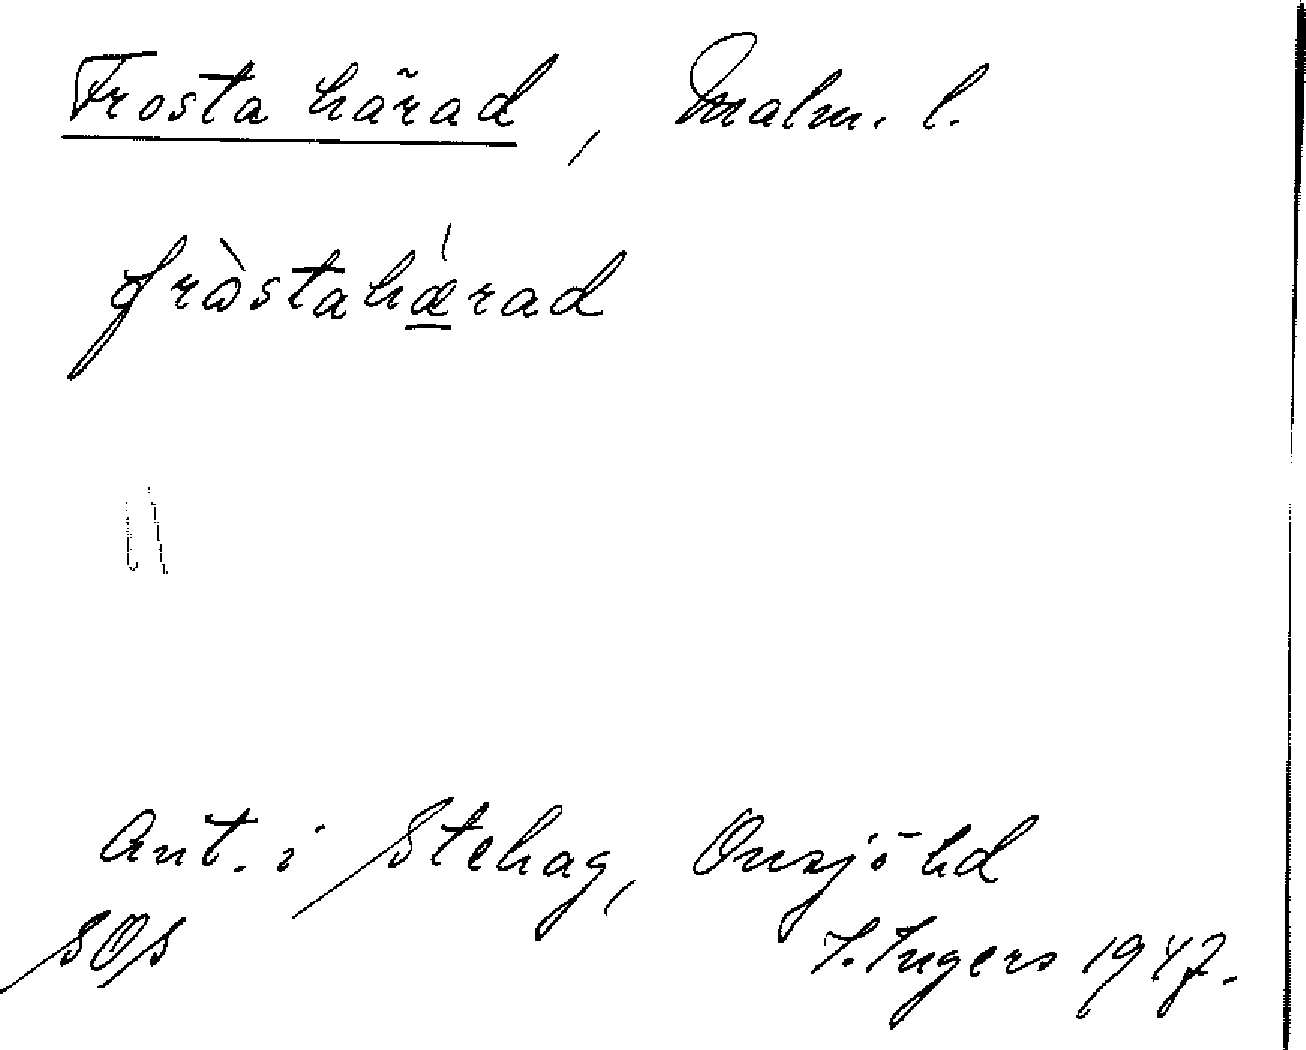 Frosta härad, Malm. l.
fròstahǽ̱rad
Ant. i Stehag, Onsjö hd
SOS I. Ingers 1947.